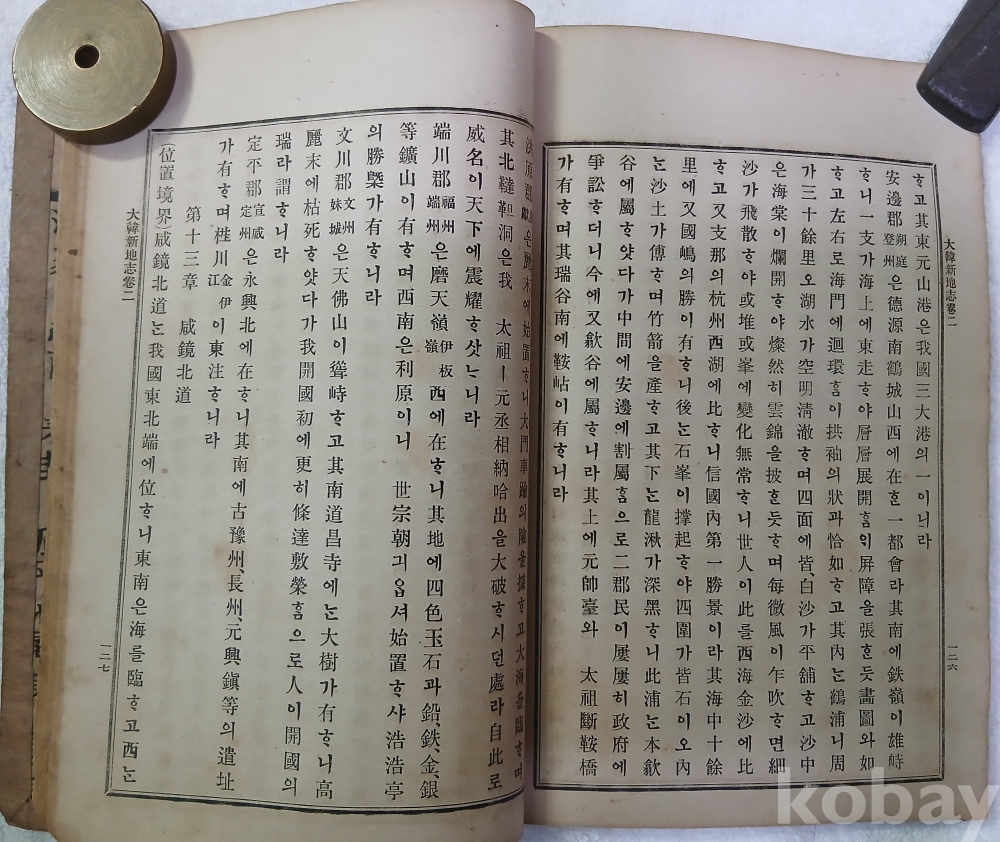 大韓新地志卷二
一二六
ᄒᆞ고其東元山港은我國三大港의一이니라
安邊郡 朔庭 登州 은德源南鶴城山西에在ᄒᆞᆫ一都會라其南에鉄嶺이雄峙
ᄒᆞ니一支가海上에東走ᄒᆞ야層層展開ᄒᆞᆷᄋᆡ屏障을張ᄒᆞᆫ듯畵圖와如
ᄒᆞ고左右로海門에迴環ᄒᆞᆷ이拱袖의狀과恰如ᄒᆞ고其內ᄂᆞᆫ鶴浦니周
가三十餘里오湖水가空明淸澈ᄒᆞ며四面에皆,白沙가平舖ᄒᆞ고沙中
은海棠이爛開ᄒᆞ야燦然히雲錦을披ᄒᆞᆫ듯ᄒᆞ며每微風이乍吹ᄒᆞ면細
沙가飛散ᄒᆞ야或堆或峯에變化無常ᄒᆞ니世人이此를西海金沙에比
ᄒᆞ고又支那의杭州西湖에比ᄒᆞ니信國內第一勝景이라其海中十餘
里에又國嶋의勝이有ᄒᆞ니後ᄂᆞᆫ石峯이撑起ᄒᆞ야四圍가皆石이오內
ᄂᆞᆫ沙土가傅ᄒᆞ며竹箭을產ᄒᆞ고其下ᄂᆞᆫ龍湫가深黑ᄒᆞ니此浦ᄂᆞᆫ本歙
谷에屬ᄒᆞ얏다가中間에安邊에割屬ᄒᆞᆷ으로二郡民이屢屢히政府에
爭訟ᄒᆞ더니今에又歙谷에屬ᄒᆞ니라其上에元帥臺와 太祖斷鞍橋
가有ᄒᆞ며其瑞谷南에鞍岾이有ᄒᆞ니라
洪原郡 은麗末에始置ᄒᆞ니大門車踰의險을據ᄒᆞ고大海를臨ᄒᆞ며
其北韃靼洞은我 太祖ㅣ元丞相納哈出을大破ᄒᆞ시던處라自此로
威名이天下에震耀ᄒᆞ삿ᄂᆞ니라
端川郡 福州 端州 은磨天嶺 伊板嶺 西에在ᄒᆞ니其地에四色玉石과鉛,鉄,金,銀
等鑛山이有ᄒᆞ며西南은利原이니 世宗朝긔ᄋᆞᆸ셔始置ᄒᆞ샤浩浩亭
의勝槩가有ᄒᆞ니라
文川郡 文州 妹城 은天佛山이聳峙ᄒᆞ고其南道昌寺에ᄂᆞᆫ大樹가有ᄒᆞ니高
麗末에枯死ᄒᆞ얏다가我開國初에更히條達敷榮ᄒᆞᆷ으로人이開國의
瑞라謂ᄒᆞ니라
定平郡 宣威 定州 은永興北에在ᄒᆞ니其南에古豫州,長州,元興鎭等의遺址
가有ᄒᆞ며桂川 金伊江 이東注ᄒᆞ니라
第十三章 咸鏡北道
(位置境界)咸鏡北道ᄂᆞᆫ我國東北端에位ᄒᆞ니東南은海를臨ᄒᆞ고西ᄂᆞᆫ
大韓新地志卷二
一二七
kobay